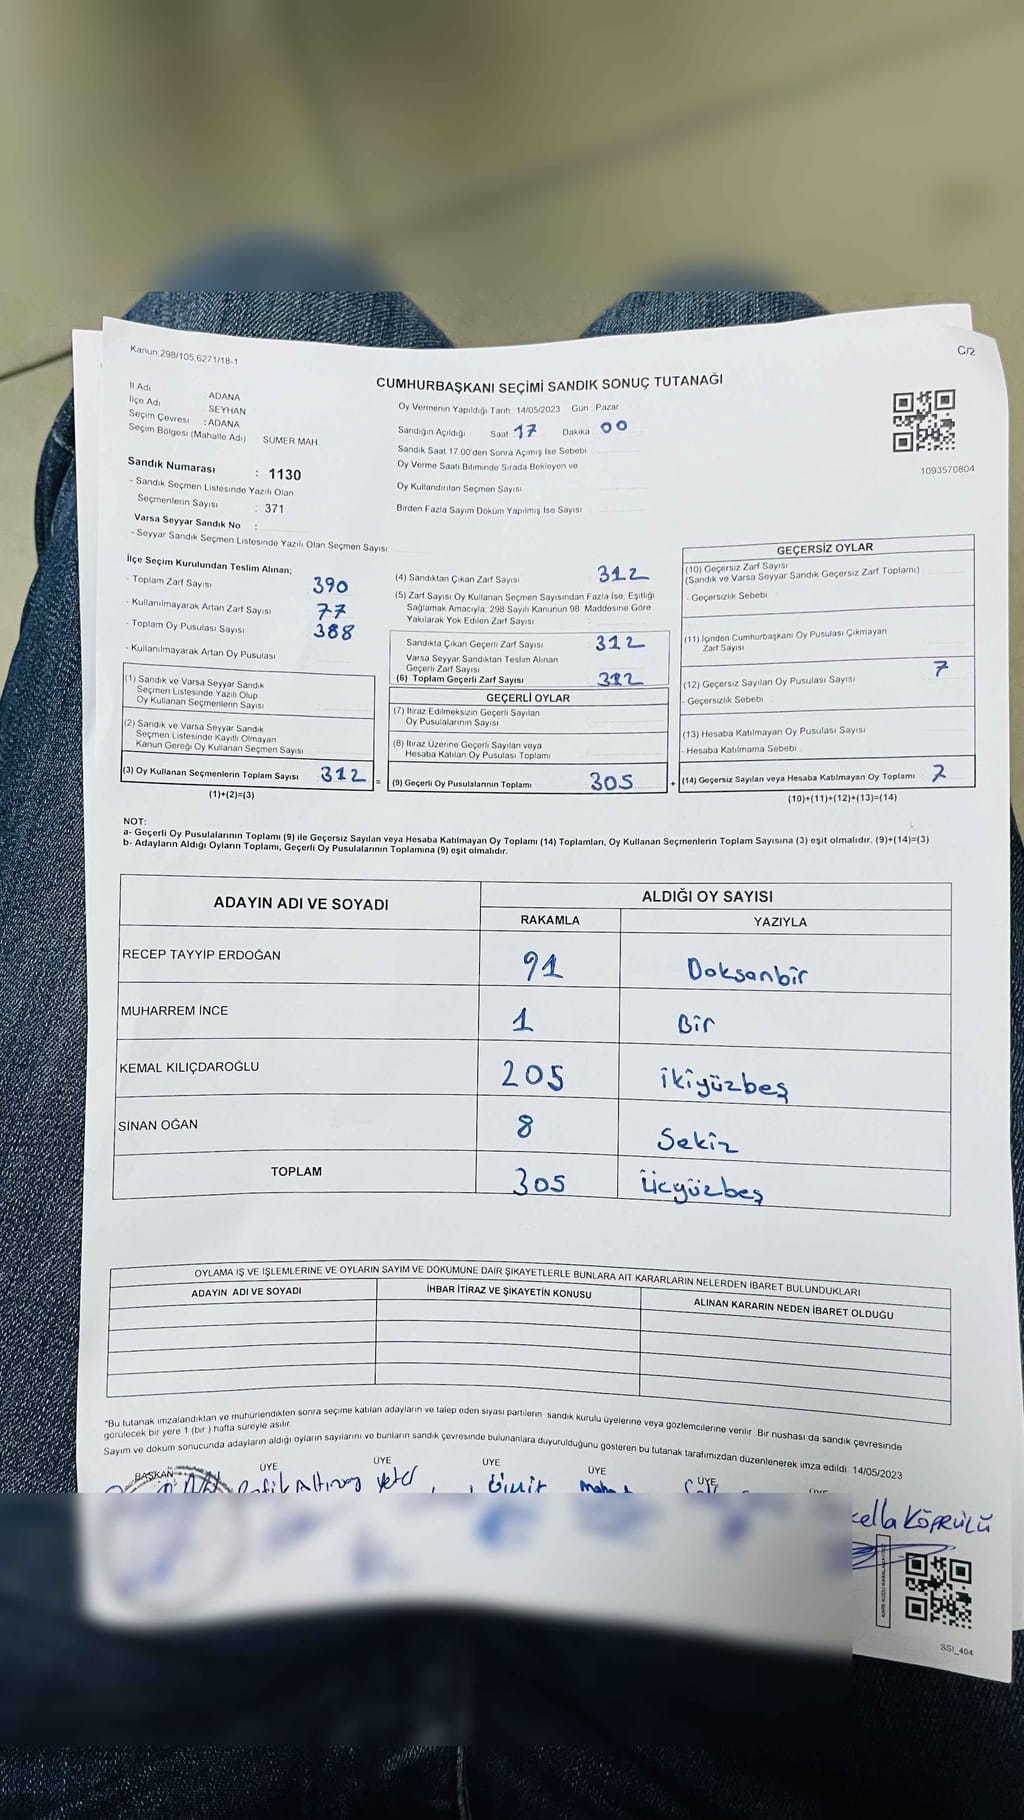 Kanun:298/105,6271/18-1
C/2
CUMHURBAŞKANI SEÇİMİ SANDIK SONUÇ TUTANAĞI
İl Adı ADANA
İlçe Adı SEYHAN
Seçim Çevresi : ADANA
Seçim Bölgesi (Mahalle Adı) : SÜMER MAH
Sandık Numarası : 1130
- Sandık Seçmen Listesinde Yazılı Olan
Seçmenlerin Sayısı : 371
Varsa Seyyar Sandık No :
- Seyyar Sandık Seçmen Listesinde Yazılı Olan Seçmen Sayısı:
Oy Vermenin Yapıldığı Tarih 14/05/2023 Gün : Pazar
Sandığın Açıldığı Saat 17 Dakika 00
Sandık Saat 17.00'den Sonra Açımış İse Sebebi
Oy Verme Saati Bitiminde Sırada Bekleyen ve
Oy Kullandırılan Seçmen Sayısı
Birden Fazla Sayım Döküm Yapılmış İse Sayısı
1093570804
İlçe Seçim Kurulundan Teslim Alınan;
- Toplam Zarf Sayısı 390
- Kullanılmayarak Artan Zarf Sayısı 77
- Toplam Oy Pusulası Sayısı 388
- Kullanılmayarak Artan Oy Pusulası
(1) Sandık ve Varsa Seyyar Sandık
Seçmen Listesinde Yazılı Olup
Oy Kullanan Seçmenlerin Sayısı
(2) Sandık ve Varsa Seyyar Sandık
Seçmen Listesinde Kayıtlı Olmayan
Kanun Gereği Oy Kullanan Seçmen Sayısı
(3) Oy Kullanan Seçmenlerin Toplam Sayısı 312 =
(1)+(2)=(3)
(4) Sandıktan Çıkan Zarf Sayısı 312
(5) Zarf Sayısı Oy Kullanan Seçmen Sayısından Fazla İse, Eşitliği
Sağlamak Amacıyla, 298 Sayılı Kanunun 98. Maddesine Göre
Yakılarak Yok Edilen Zarf Sayısı
Sandıkta Çıkan Geçerli Zarf Sayısı 312
Varsa Seyyar Sandıktan Teslim Alınan
Geçerli Zarf Sayısı
(6) Toplam Geçerli Zarf Sayısı 312
GEÇERLİ OYLAR
(7) İtiraz Edilmeksizin Geçerli Sayılan
Oy Pusulalarının Sayısı
(8) İtiraz Üzerine Geçerli Sayılan veya
Hesaba Katılan Oy Pusulası Toplamı
(9) Geçerli Oy Pusulalarının Toplamı 305 +
GEÇERSİZ OYLAR
(10) Geçersiz Zarf Sayısı
(Sandık ve Varsa Seyyar Sandık Geçersiz Zarf Toplamı)
- Geçersizlik Sebebi
(11) İçinden Cumhurbaşkanı Oy Pusulası Çıkmayan
Zarf Sayısı
(12) Geçersiz Sayılan Oy Pusulası Sayısı 7
- Geçersizlik Sebebi
(13) Hesaba Katılmayan Oy Pusulası Sayısı
- Hesaba Katılmama Sebebi
(14) Geçersiz Sayılan veya Hesaba Katılmayan Oy Toplamı 7
(10)+(11)+(12)+(13)=(14)
NOT:
a- Geçerli Oy Pusulalarının Toplamı (9) ile Geçersiz Sayılan veya Hesaba Katılmayan Oy Toplamı (14) Toplamları, Oy Kullanan Seçmenlerin Toplam Sayısına (3) eşit olmalıdır. (9)+(14)=(3)
b- Adayların Aldığı Oyların Toplamı, Geçerli Oy Pusulalarının Toplamına (9) eşit olmalıdır.
ADAYIN ADI VE SOYADI ALDIĞI OY SAYISI
RAKAMLA YAZIYLA
RECEP TAYYİP ERDOĞAN 91 Doksanbir
MUHARREM İNCE 1 Bir
KEMAL KILIÇDAROĞLU 205 ikiyüzbeş
SİNAN OĞAN 8 Sekiz
TOPLAM 305 üçyüzbeş
OYLAMA İŞ VE İŞLEMLERİNE VE OYLARIN SAYIM VE DÖKÜMÜNE DAİR ŞİKAYETLERLE BUNLARA AİT KARARLARIN NELERDEN İBARET BULUNDUKLARI
ADAYIN ADI VE SOYADI İHBAR İTİRAZ VE ŞİKAYETİN KONUSU ALINAN KARARIN NEDEN İBARET OLDUĞU
*Bu tutanak imzalandıktan ve mühürlendikten sonra seçime katılan adayların ve talep eden siyasi partilerin sandık kurulu üyelerine veya gözlemcilerine verilir. Bir nushası da sandık çevresinde
görülecek bir yere 1 (bir) hafta süreyle asılır
Sayım ve döküm sonucunda adayların aldığı oyların sayılarını ve bunların sandık çevresinde bulunanlara duyurulduğunu gösteren bu tutanak tarafımızdan düzenlenerek imza edildi. 14/05/2023
BAŞKAN ÜYE ÜYE ÜYE ÜYE ÜYE
KÖPRÜLÜ
SSİ_404